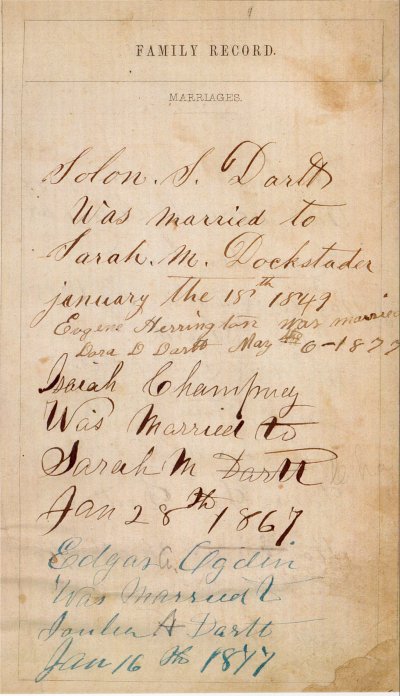 FAMILY RECORD.
MARRIAGES.
Solon. S. Dartt
Was married to
Sarah. M. Dockstader
january the 18th 1849
Eugene Herrington was married
Dora D Dartt May 6-1877
Isaiah Champney
Was Married to
Sarah M Dartt
Jan 28th 1867
Edgar Ogden
Was Married t
A Dartt
Jan 16th 1877